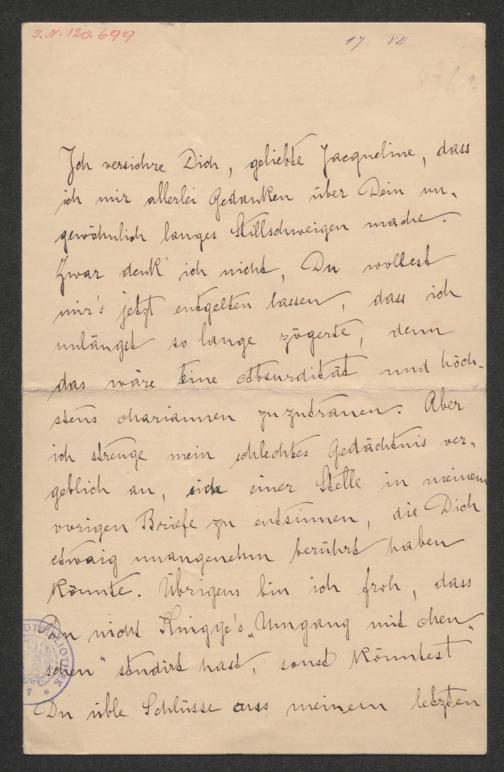 I.N. 120.699
17. VII
Ich versichre Dich, geliebte Jacqueline, dass
ich mir allerlei Gedanken über Dein un-
gewöhnlich langes Stillschweigen mache.
Zwar denk' ich nicht, Du wollest
mir's jetzt entgelten lassen, dass ich
unlängst so lange zögerte, denn
das wäre eine Absurdität und höch-
stens zuzutrauen. Aber
ich strenge mein schlechtes Gedächtnis ver-
geblich an, einer Stelle in meinem
vorigen Briefe zu entsinnen, die Dich
etwaig unangenehm berührt haben
könnte. Übrigens bin ich froh, dass
Du nicht Knigge's „Umgang mit Men-
schen" studirt hast, sonst könntest
Du üble Schlüsse aus meinem letzten